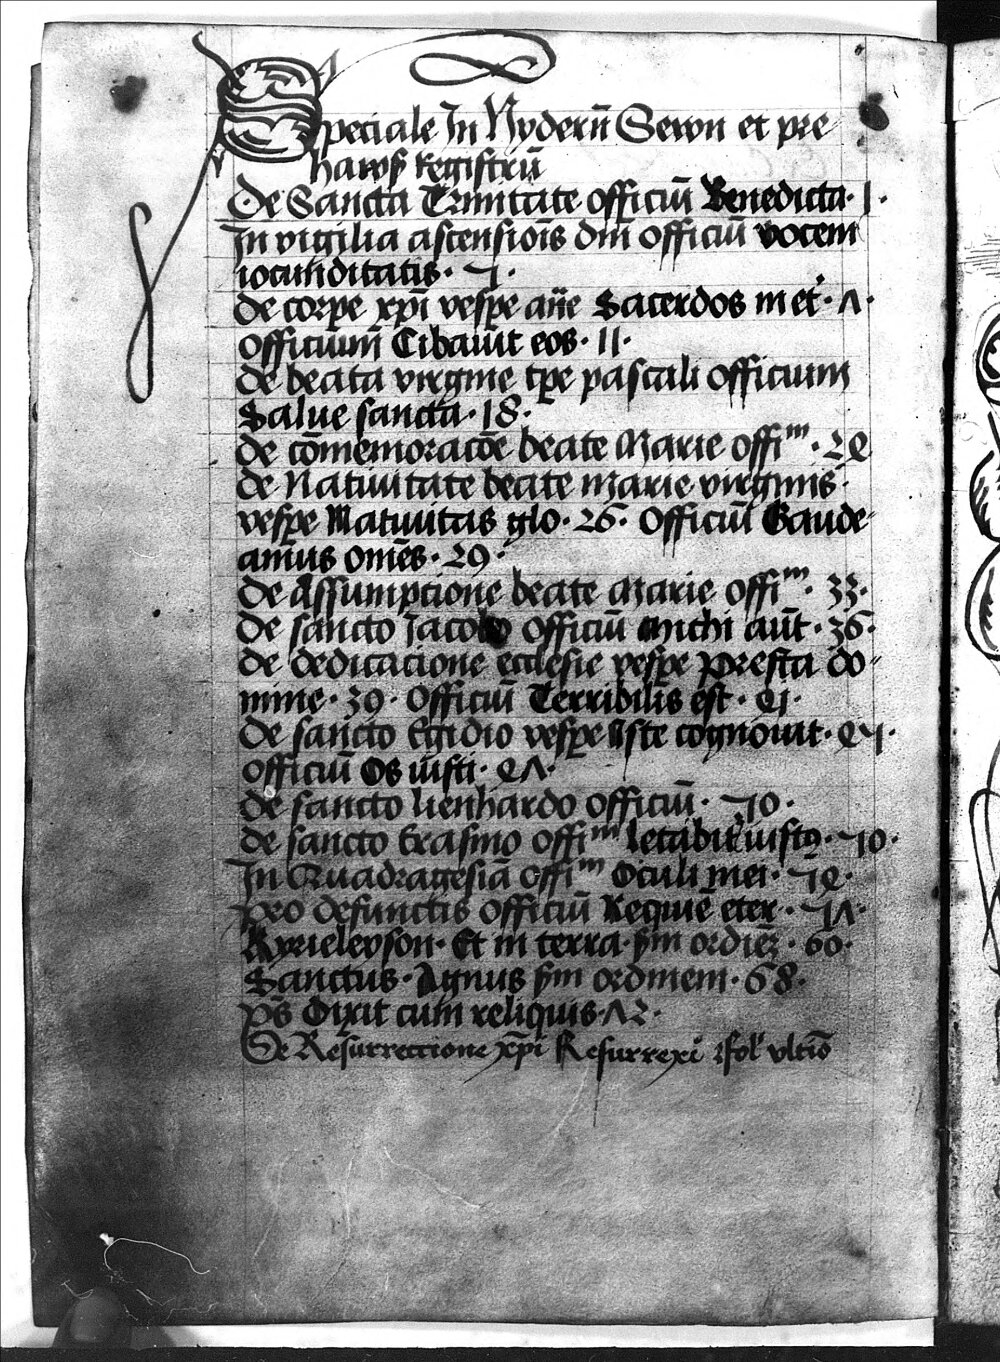 Speciale In Nyderñ Sewn et pre
harof Registrū
De Sancta Trinitate officiū Benedicta · 1 ·
In vigilia ascensiōis dm̄ officiū vocem
iocunditatis · 7 ·
de corpe xp̄i vespe an̄e Sacerdos in et͛ · Λ ·
Officium̄ Cibauit eos · 11 ·
de beata virgine tp̄e pascali officium
Salue sancta · 18 ·
de cōmemoracōe beate Marie offiᵐ · 24
de Natiuitate beate marie virginis ·
vespe Natiuitas glo · 26 · Officiū Gaude
amus om̄es · 29 ·
de Assumpcione beate Marie offiᵐ · 33 ·
de sancto Jacobo officiū michi aūt · 36 ·
de dedicacione ecclesie vespe Presta do-
mine · 39 · Officiū Terribilis est · 41 ·
de sancto Egidio vespe Iste cognouit · 45 ·
officiū Os iusti · 4Λ ·
de sancto lienhardo officiū · 50 ·
de sancto Erasmo offiᵐ letabit͛ iustꝯ · 50 ·
In Quadragesiā offiᵐ Oculi mei · 54 ·
pro defunctis officiū Requiē eter · 5Λ ·
Kyrieleyson · Et in terra · ẜm ordiēȝ · 60 ·
Sanctus · Agnus ẜm ordinem · 68 ·
ps̄ Dixit cum reliquis · Λ2 ·
De Resurrectione xp̄i Resurrexi fol͛ vltīo